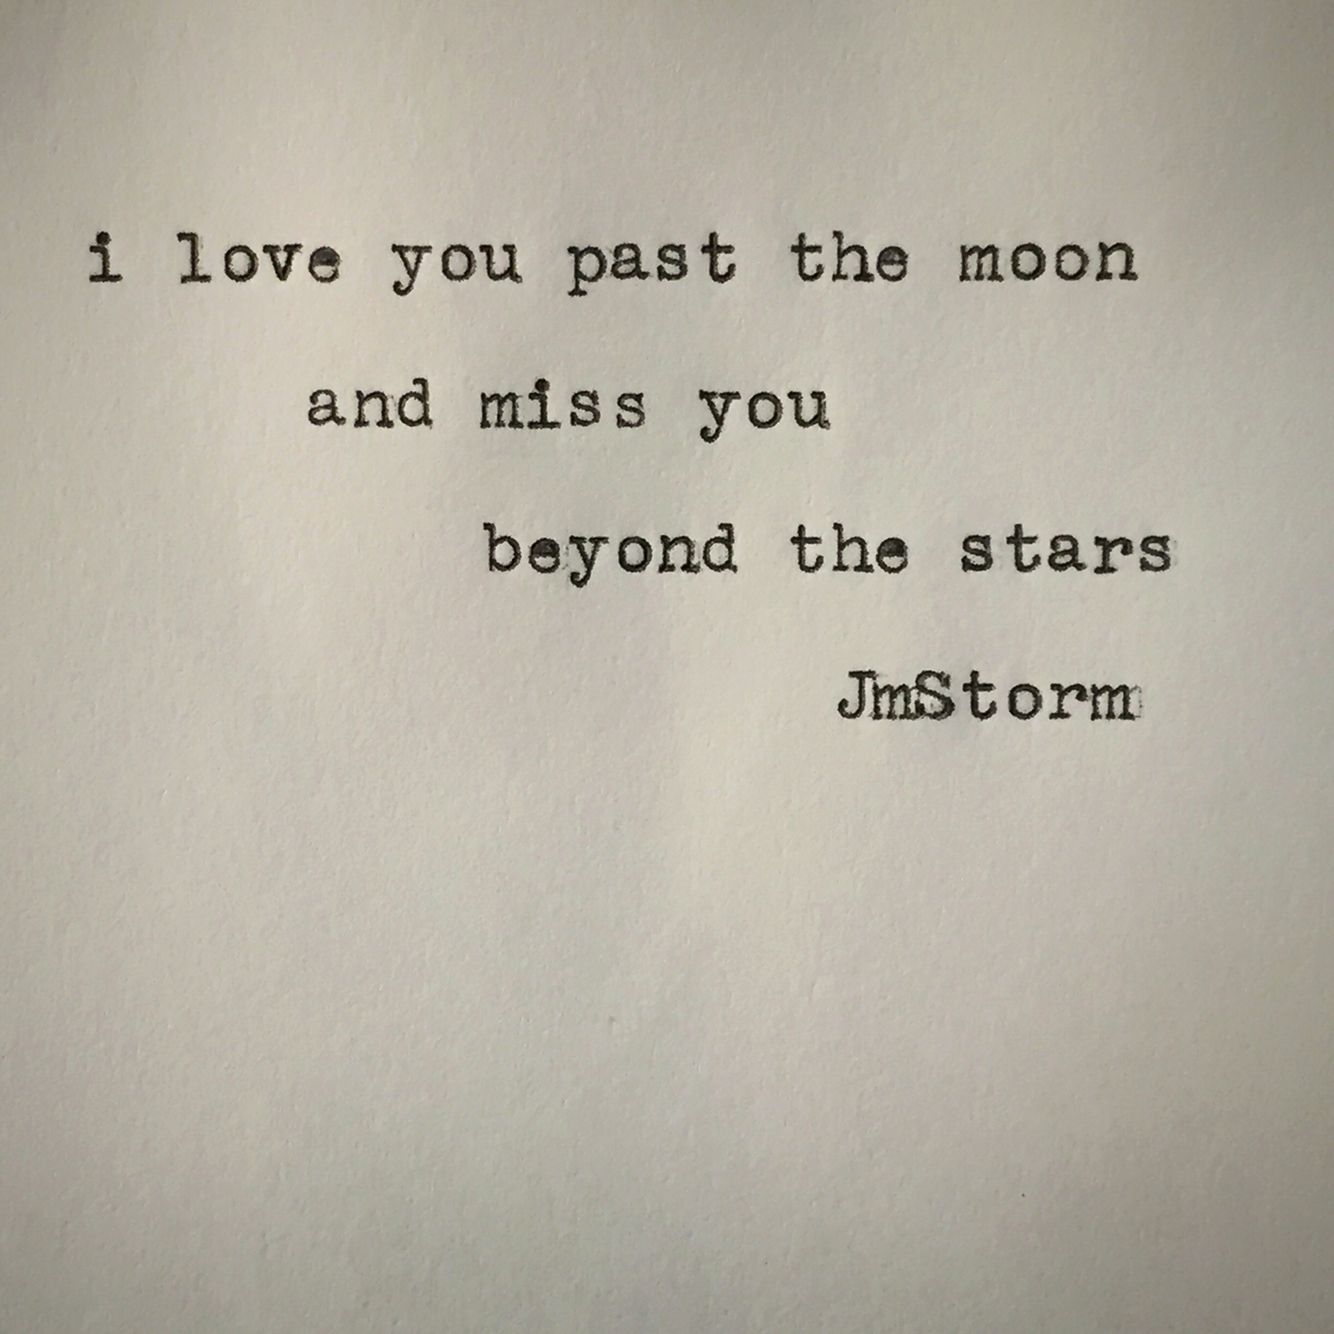 i love you past the moon
and miss you
beyond the stars
JmStorm